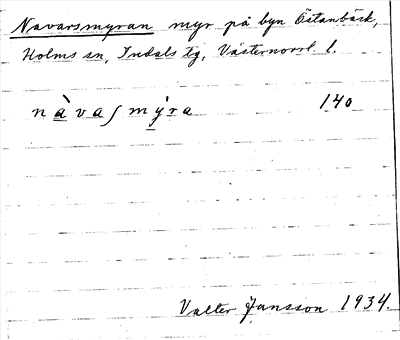 Navarsmyran myr på byn Östanbäck,
Holms sn, Indals tg, Västernorrl. l.
nàvaʃmýra 140
Valter Jansson 1934.